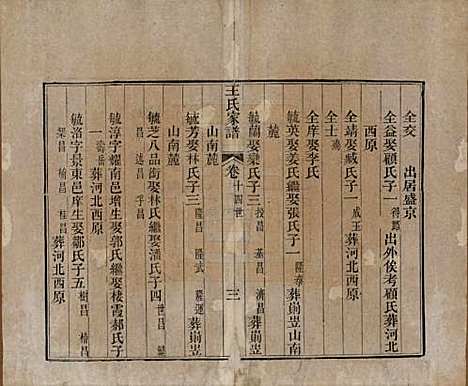 全交 出居盛京
全益娶顧氏子一 得爵 出外俟考顧氏葬河北
西原
全靖娶臧氏子一 咸玉 葬河北西原
全士 亮
全庠娶李氏
毓英娶姜氏繼娶張氏子一 隆泰 葬崩豈山南
麓
毓蘭娶欒氏子三 投昌 基昌 濟昌 葬崩豈
王氏家譜 卷 十四世 三
山南麓
毓芳娶林氏子三 隆昌 隆武 隆運 葬崩豈
山南麓
毓芝八品銜娶林氏繼娶潘氏子四 世昌 昌 孚昌
毓淳字耀南邑增生娶郭氏繼娶棲霞郝氏子
一 壽岳 葬河北西原
毓洛字景東邑庠生娶鄒氏子五 樹昌 椿昌
榮昌 楡昌 桂昌 葬河北西原